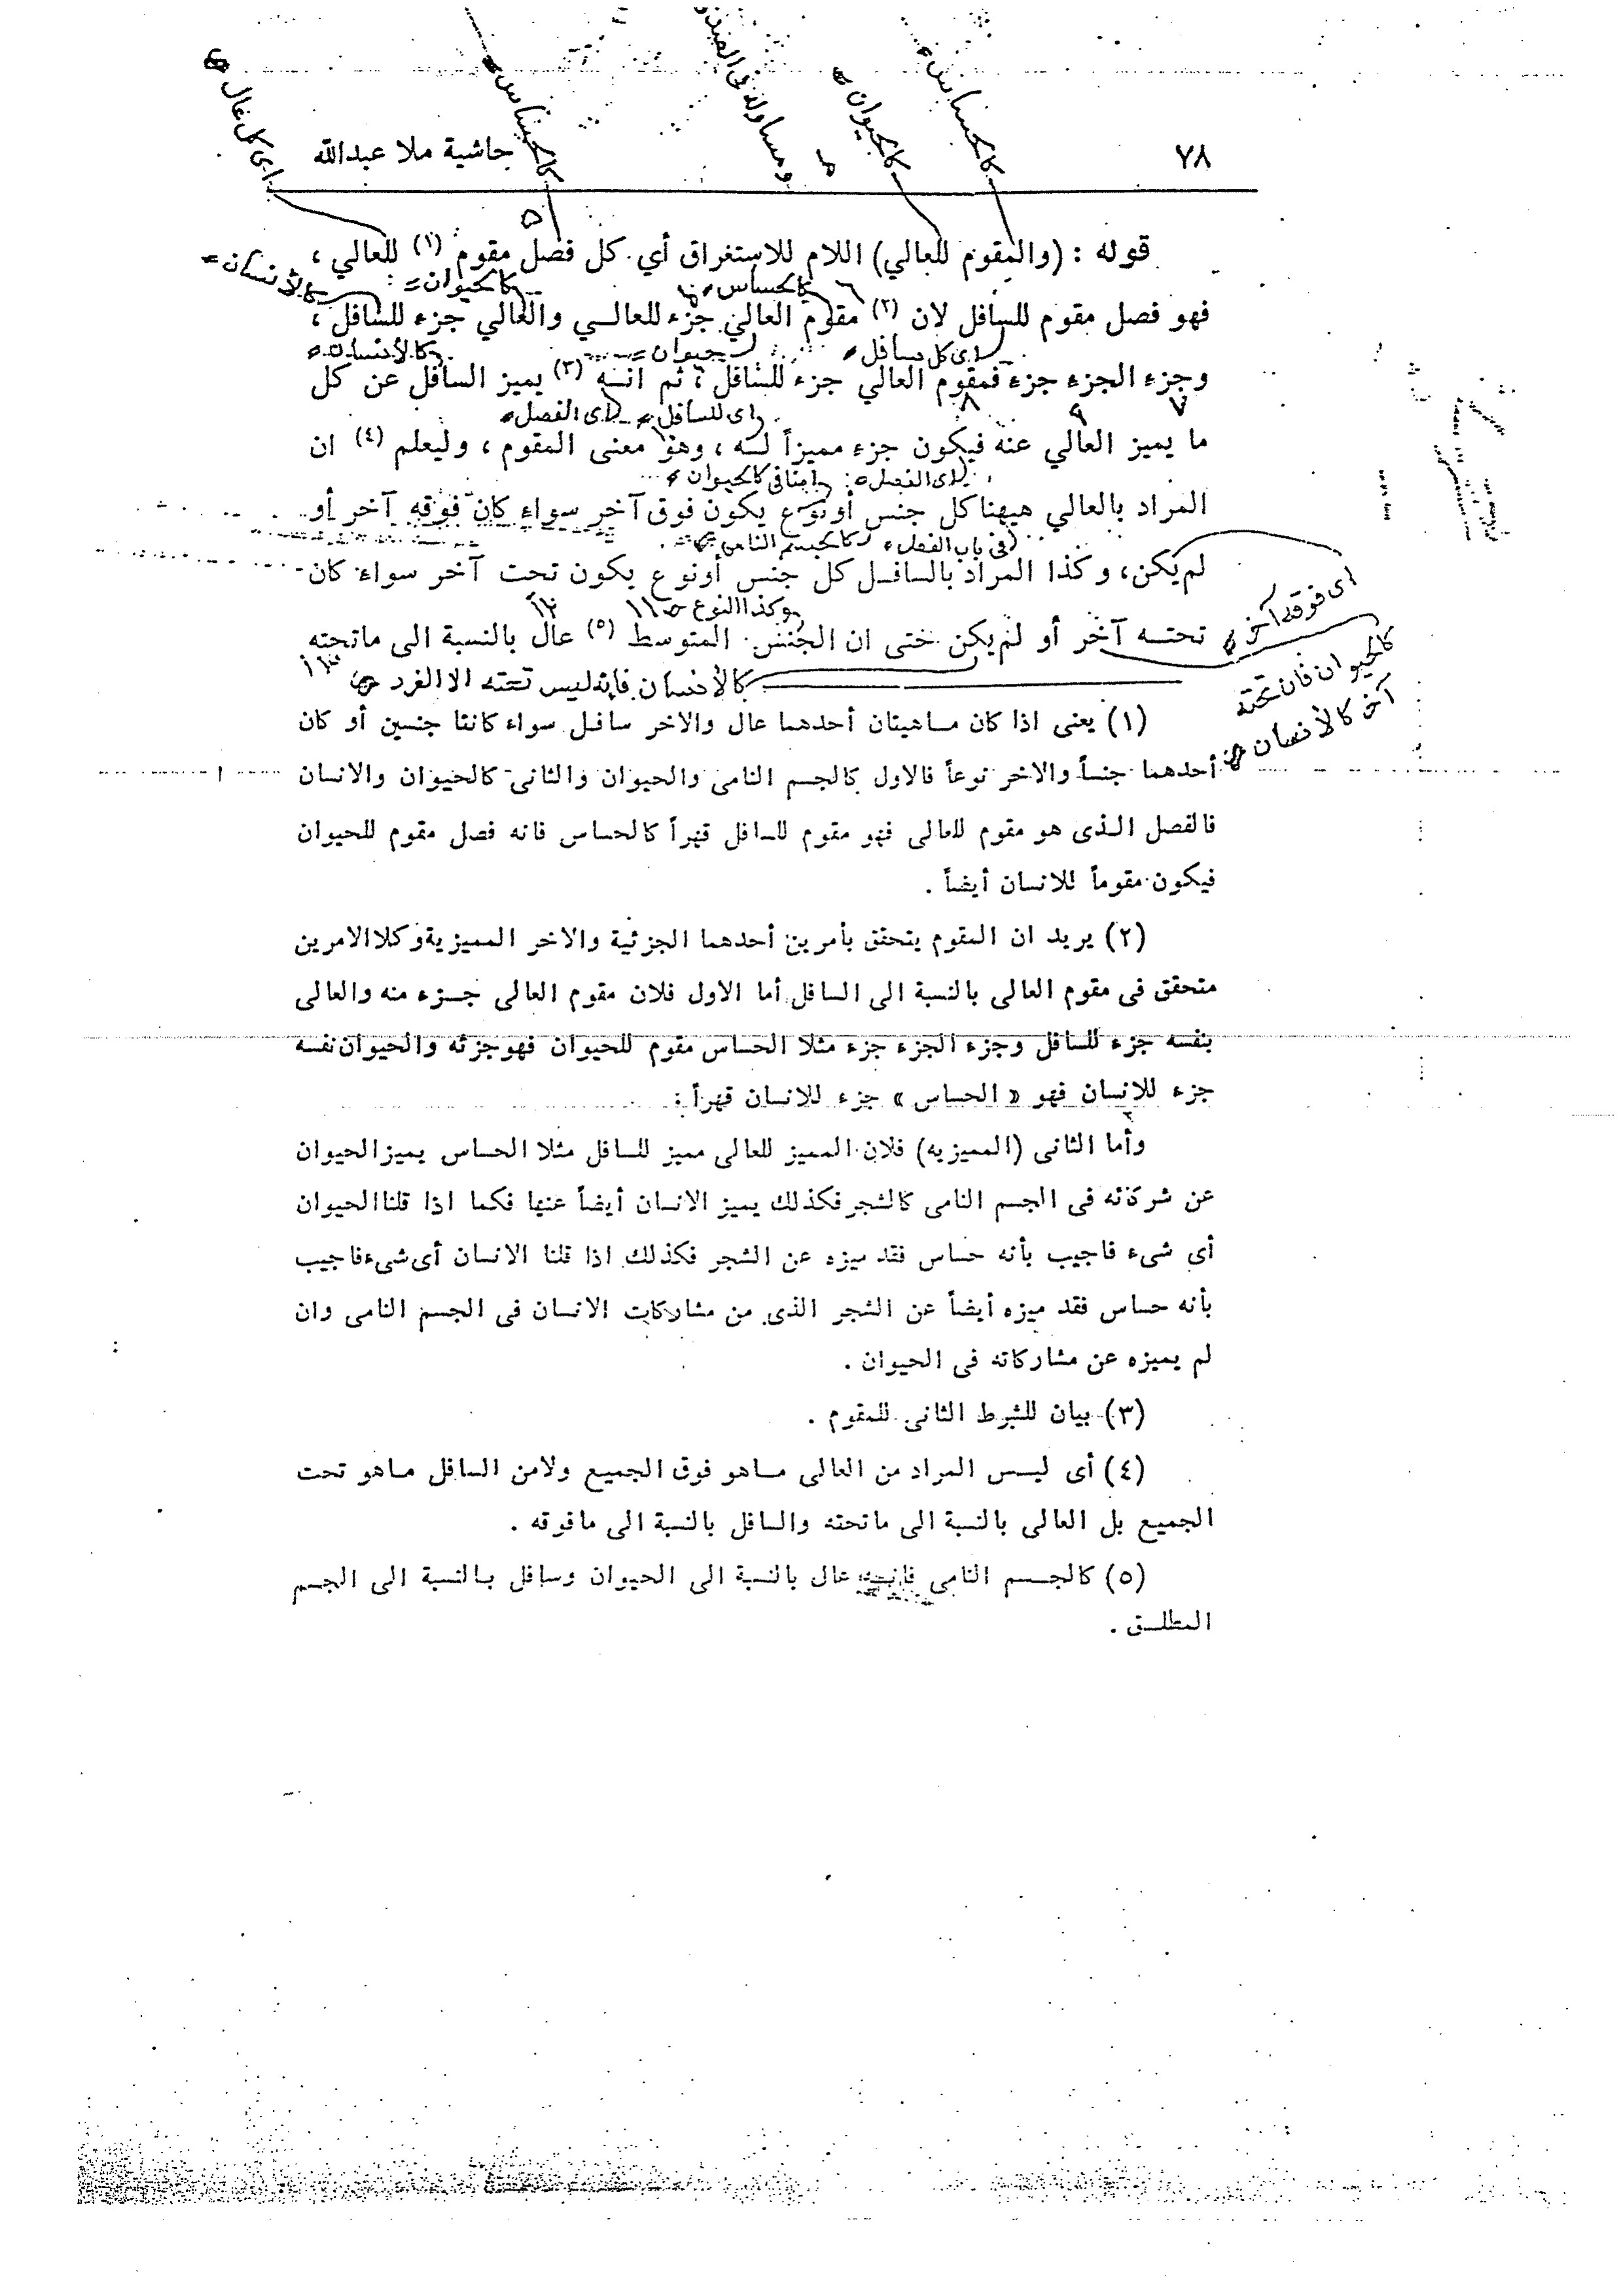 ٧٨
حاشية ملا عبدالله
كالحساس
كالحيوان
كالحساس
اى كل عال
قوله : (والمقوم للعالي) اللام للاستغراق أي كل فصل مقوم (١) للعالي ،
كالحساس
كالحيوان
كالانسان
فهو فصل مقوم للسافل لان (٢) مقوم العالي جزء للعالــي والعالي جزء للسافل ،
اى كل سافل
حيوان
كالانسان
وجزء الجزء جزء فمقوم العالي جزء للسافل ، ثم انــه (٣) يميز السافل عن كل
اى للسافل
اى الفصل
ما يميز العالي عنه فيكون جزء مميزاً لــه ، وهو معنى المقوم ، وليعلم (٤) ان
اى الفصل
اضافى كالحيوان
المراد بالعالي هيهنا كل جنس أو نوع يكون فوق آخر سواء كان فوقه آخر أو
فى باب الفصل
كالجسم النامى
لم يكن، وكذا المراد بالسافــل كل جنس أو نوع يكون تحت آخر سواء كان
اى فوقه آخر
وكذا النوع
تحتــه آخر أو لم يكن حتى ان الجنس المتوسط (٥) عال بالنسبة الى ماتحته
كالحيوان فان تحته
آخر كالأنسان
كالأنسان فانه ليس تحته الا الفرد
(١) يعنى اذا كان مــاهيتان أحدهما عال والاخر سافــل سواء كانتا جنسين أو كان
أحدهما جنساً والاخر نوعاً فالاول كالجسم النامى والحيوان والثانى كالحيوان والانسان
فالفصل الــذى هو مقوم للعالى فهو مقوم للسافل قهراً كالحساس فانه فصل مقوم للحيوان
فيكون مقوماً للانسان أيضاً .
(٢) يريد ان المقوم يتحقق بأمرين أحدهما الجزئية والاخر المميزية وكلا الامرين
متحقق فى مقوم العالى بالنسبة الى السافل أما الاول فلان مقوم العالى جــزء منه والعالى
بنفسه جزء للسافل وجزء الجزء جزء مثلا الحساس مقوم للحيوان فهو جزئه والحيوان نفسه
جزء للانسان فهو « الحساس » جزء للانسان قهراً .
وأما الثانى (المميزيه) فلان المميز للعالى مميز للسافل مثلا الحساس يميز الحيوان
عن شركائه فى الجسم النامى كالشجر فكذلك يميز الانسان أيضاً عنها فكما اذا قلنا الحيوان
أى شىء فاجيب بأنه حساس فقد ميزه عن الشجر فكذلك اذا قلنا الانسان أى شىء فاجيب
بأنه حساس فقد ميزه أيضاً عن الشجر الذى من مشاركات الانسان فى الجسم النامى وان
لم يميزه عن مشاركاته فى الحيوان .
(٣) بيان للشرط الثانى للمقوم .
(٤) أى ليــس المراد من العالى مــاهو فوق الجميع ولامن السافل مــاهو تحت
الجميع بل العالى بالنسبة الى ماتحته والسافل بالنسبة الى مافوقه .
(٥) كالجــسم النامى فانــه عال بالنسبة الى الحيوان وسافل بــالنسبة الى الجسم
المطلــق .